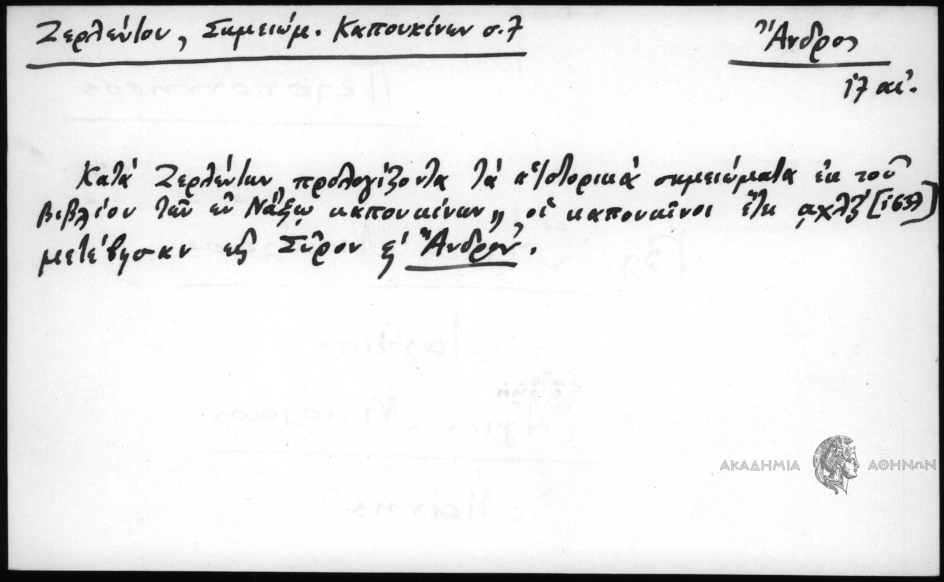 Ζερλέντου, Σημειώμ. Καπουκίνων σ.7
Ἄνδρος
17 αἰ.
Κατά Ζερλέντην, προλογίζοντα τά "Ἱστορικά σημειώματα ἐκ τοῦ
βιβλίου τῶν ἐν Νάξῳ καπουκίνων", οἱ καπουκῖνοι ἔτη αχλζ' [1637]
μετέβησαν εἰς Σῦρον καί Ἄνδρον.
ΑΚΑΔΗΜΙΑ ΑΘΗΝΩΝ